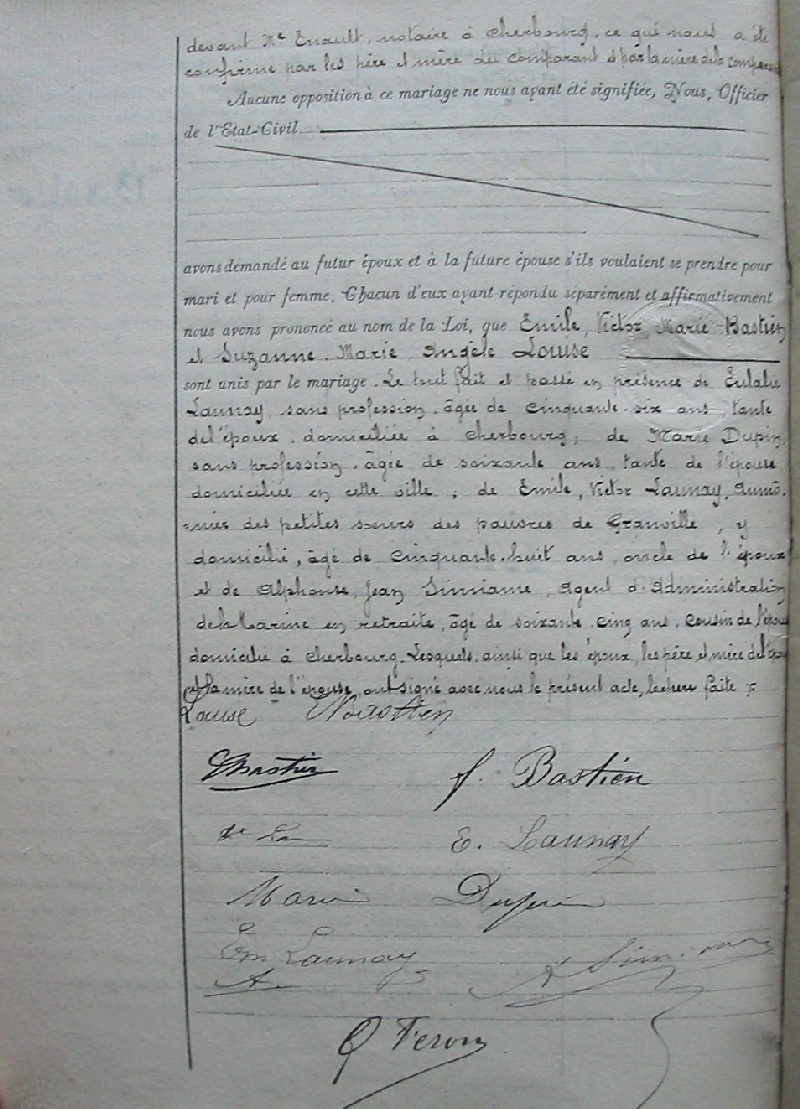 devant Me Enault, notaire à Cherbourg, ce qui nous a été
confirmé par les père et mère du comparant et par la mère de la comparante
Aucune opposition à ce mariage ne nous ayant été signifiée, Nous, Officier
de l'Etat-Civil
avons demandé au futur époux et à la future épouse s'ils voulaient se prendre pour
mari et pour femme. Chacun d'eux ayant répondu séparément et affirmativement
nous avons prononcé au nom de la Loi, que Emile, Victor, Marie Bastien
et Suzanne. Marie Angèle Louise
sont unis par le mariage. Le tout fait et passé en présence de Eulalie
Launay, sans profession, âgée de cinquante-six ans, tante
de l'époux, domiciliée à Cherbourg; de Marie Dupin,
sans profession, âgée de soixante ans, tante de l'épouse,
domiciliée en cette ville; de Emile, Victor Launay, Aumô-
nier des petites sœurs des pauvres de Granville, y
domicilié, âgé de cinquante-huit ans, oncle de l'époux
et de Alphonse, Jean Simiane, Agent d'Administration
de la Marine en retraite, âgé de soixante-cinq ans, cousin de l'époux
domicilié à Cherbourg. Lesquels, ainsi que les époux, les père et mère de l'époux
et la mère de l'épouse, ont signé avec nous le présent acte, lecture faite
Louise
Bastien f. Bastien
E. Launay
Marie Dupin
Em Launay
A
Q Feron